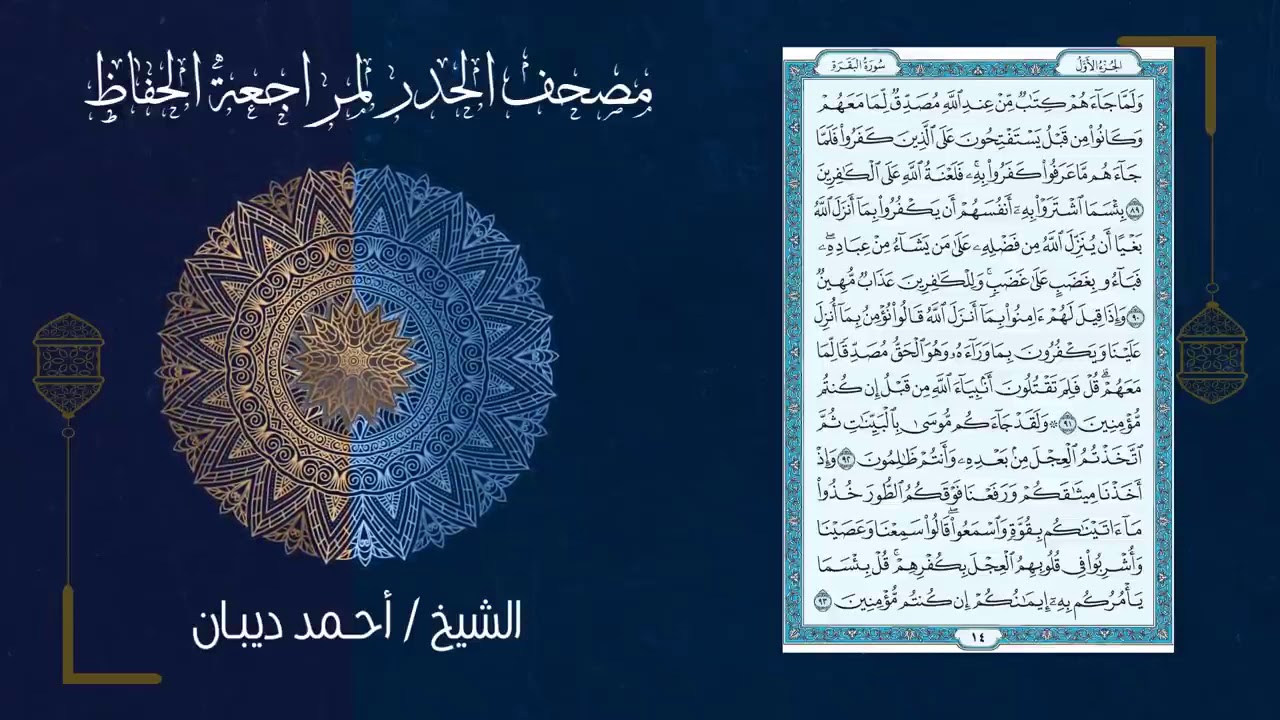 مصحف الحدر لمراجعة الحفاظ
الشيخ / أحمد ديبان
الجزء الأول
سورة البقرة
وَلَمَّا جَآءَهُمْ كِتَٰبٌ مِّنْ عِندِ ٱللَّهِ مُصَدِّقٌ لِّمَا مَعَهُمْ
وَكَانُوا۟ مِن قَبْلُ يَسْتَفْتِحُونَ عَلَى ٱلَّذِينَ كَفَرُوا۟ فَلَمَّا
جَآءَهُم مَّا عَرَفُوا۟ كَفَرُوا۟ بِهِۦ ۚ فَلَعْنَةُ ٱللَّهِ عَلَى ٱلْكَٰفِرِينَ
٨٩ بِئْسَمَا ٱشْتَرَوْا۟ بِهِۦٓ أَنفُسَهُمْ أَن يَكْفُرُوا۟ بِمَآ أَنزَلَ ٱللَّهُ
بَغْيًا أَن يُنَزِّلَ ٱللَّهُ مِن فَضْلِهِۦ عَلَىٰ مَن يَشَآءُ مِنْ عِبَادِهِۦ ۖ
فَبَآءُو بِغَضَبٍ عَلَىٰ غَضَبٍ ۚ وَلِلْكَٰفِرِينَ عَذَابٌ مُّهِينٌ
٩٠ وَإِذَا قِيلَ لَهُمْ ءَامِنُوا۟ بِمَآ أَنزَلَ ٱللَّهُ قَالُوا۟ نُؤْمِنُ بِمَآ أُنزِلَ
عَلَيْنَا وَيَكْفُرُونَ بِمَا وَرَآءَهُۥ وَهُوَ ٱلْحَقُّ مُصَدِّقًا لِّمَا
مَعَهُمْ ۗ قُلْ فَلِمَ تَقْتُلُونَ أَنۢبِيَآءَ ٱللَّهِ مِن قَبْلُ إِن كُنتُم
مُّؤْمِنِينَ ٩١ ۞ وَلَقَدْ جَآءَكُم مُّوسَىٰ بِٱلْبَيِّنَٰتِ ثُمَّ
ٱتَّخَذْتُمُ ٱلْعِجْلَ مِنۢ بَعْدِهِۦ وَأَنتُمْ ظَٰلِمُونَ ٩٢ وَإِذْ
أَخَذْنَا مِيثَٰقَكُمْ وَرَفَعْنَا فَوْقَكُمُ ٱلطُّورَ خُذُوا۟
مَآ ءَاتَيْنَٰكُم بِقُوَّةٍ وَٱسْمَعُوا۟ ۖ قَالُوا۟ سَمِعْنَا وَعَصَيْنَا
وَأُشْرِبُوا۟ فِى قُلُوبِهِمُ ٱلْعِجْلَ بِكُفْرِهِمْ ۚ قُلْ بِئْسَمَا
يَأْمُرُكُم بِهِۦٓ إِيمَٰنُكُمْ إِن كُنتُم مُّؤْمِنِينَ ٩٣
١٤